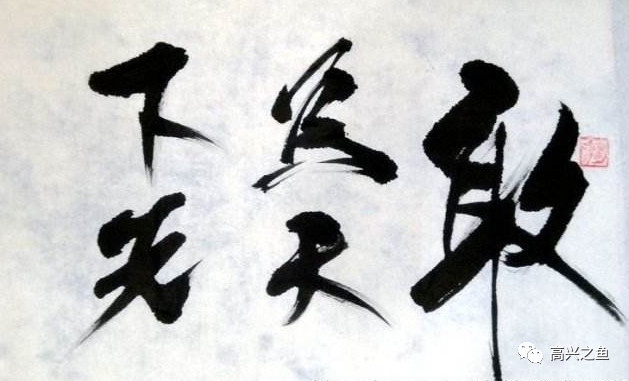 敢
为天
下先
高兴之鱼